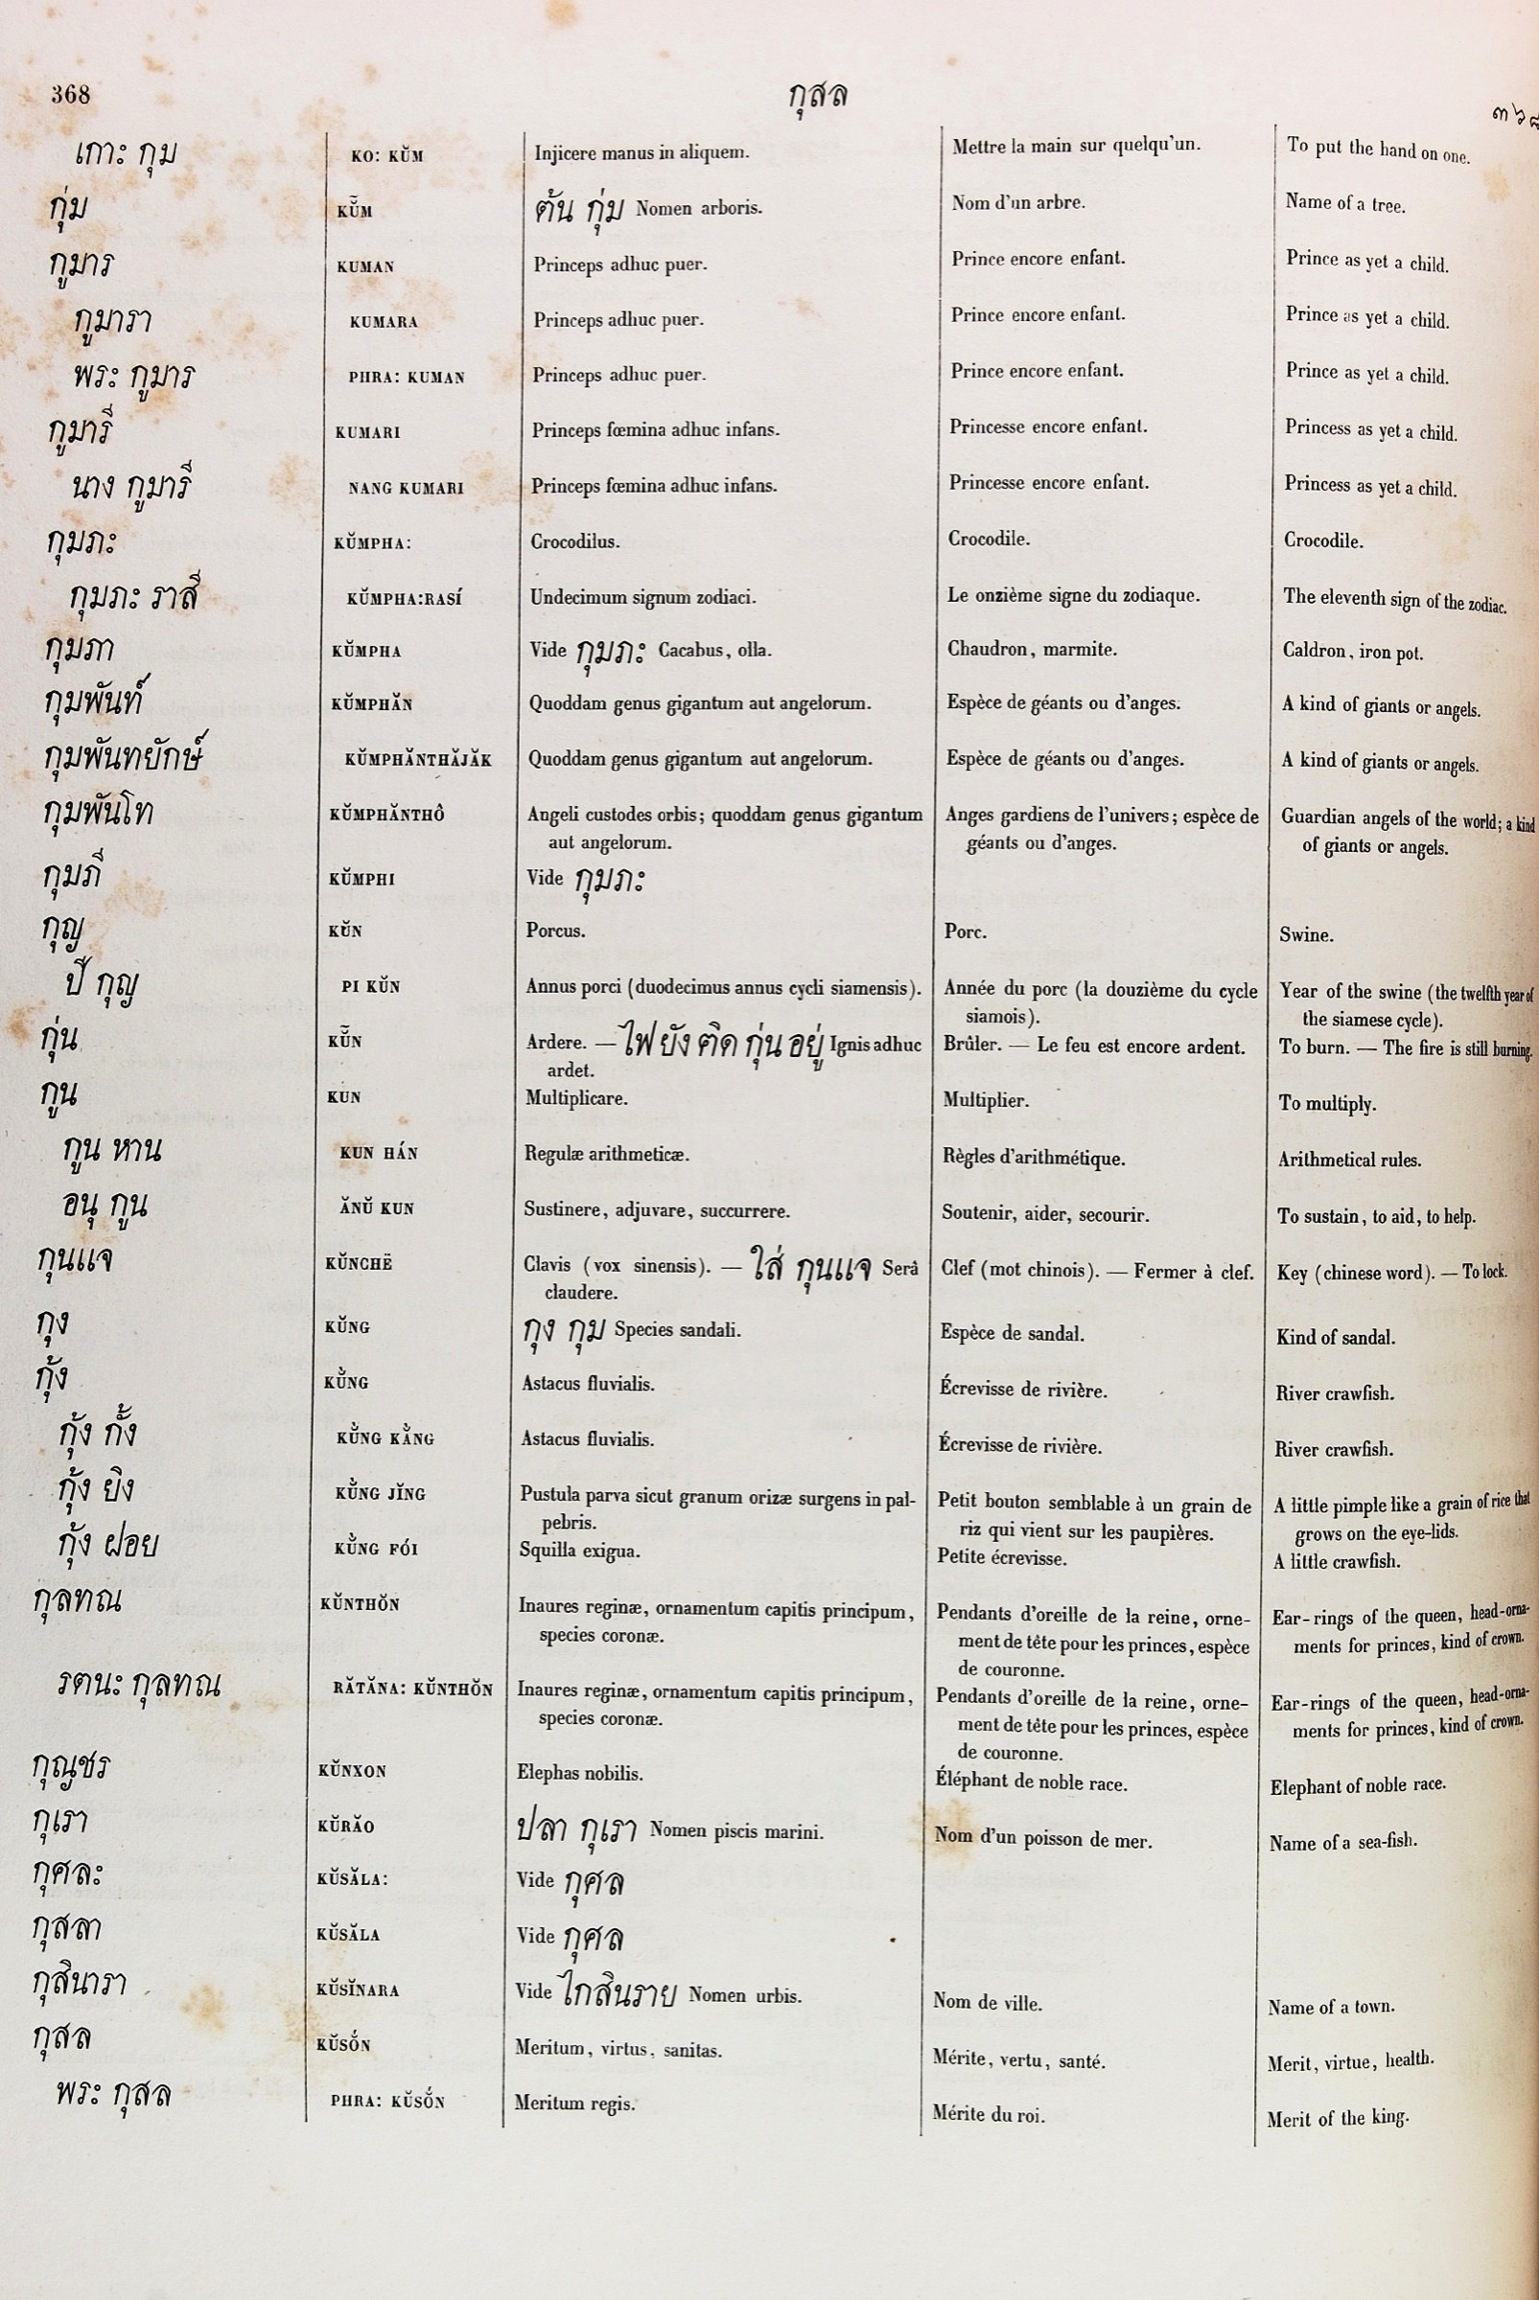 368
กุสล
๓๖๘
เกาะ กุม KO: KŬM Injicere manus in aliquem. Mettre la main sur quelqu'un. To put the hand on one.
กุ่ม KŬ̀M ต้น กุ่ม Nomen arboris. Nom d'un arbre. Name of a tree.
กูมาร KUMAN Princeps adhuc puer. Prince encore enfant. Prince as yet a child.
กูมารา KUMARA Princeps adhuc puer. Prince encore enfant. Prince as yet a child.
พระ กูมาร PHRA: KUMAN Princeps adhuc puer. Prince encore enfant. Prince as yet a child.
กูมารี KUMARI Princeps fœmina adhuc infans. Princesse encore enfant. Princess as yet a child.
นาง กูมารี NANG KUMARI Princeps fœmina adhuc infans. Princesse encore enfant. Princess as yet a child.
กุมภะ KŬMPHA: Crocodilus. Crocodile. Crocodile.
กุมภะ ราสี KŬMPHA:RASÍ Undecimum signum zodiaci. Le onzième signe du zodiaque. The eleventh sign of the zodiac.
กุมภา KŬMPHA Vide กุมภะ Cacabus, olla. Chaudron, marmite. Caldron, iron pot.
กุมพันท์ KŬMPHĂN Quoddam genus gigantum aut angelorum. Espèce de géants ou d'anges. A kind of giants or angels.
กุมพันทยักษ์ KŬMPHĂNTHĂJĂK Quoddam genus gigantum aut angelorum. Espèce de géants ou d'anges. A kind of giants or angels.
กุมพันโท KŬMPHĂNTHÔ Angeli custodes orbis; quoddam genus gigantum Anges gardiens de l'univers; espèce de Guardian angels of the world; a kind
aut angelorum. géants ou d'anges. of giants or angels.
กุมภี KŬMPHI Vide กุมภะ
กุญ KŬN Porcus. Porc. Swine.
ปี กุญ PI KŬN Annus porci (duodecimus annus cycli siamensis). Année du porc (la douzième du cycle Year of the swine (the twelfth year of
siamois). the siamese cycle).
กุ่น KŬ̀N Ardere. — ไฟ ยัง ติด กุ่น อยู่ Ignis adhuc Brûler. — Le feu est encore ardent. To burn. — The fire is still burning.
ardet.
กูน KUN Multiplicare. Multiplier. To multiply.
กูน หาน KUN HÁN Regulæ arithmeticæ. Règles d'arithmétique. Arithmetical rules.
อนุ กูน ĂNŬ KUN Sustinere, adjuvare, succurrere. Soutenir, aider, secourir. To sustain, to aid, to help.
กุนแจ KŬNCHË Clavis (vox sinensis). — ใส่ กุนแจ Serâ Clef (mot chinois). — Fermer à clef. Key (chinese word). — To lock.
claudere.
กุง KŬNG กุง กุม Species sandali. Espèce de sandal. Kind of sandal.
กุ้ง KŬ̀NG Astacus fluvialis. Écrevisse de rivière. River crawfish.
กุ้ง กั้ง KŬ̀NG KẰNG Astacus fluvialis. Écrevisse de rivière. River crawfish.
กุ้ง ยิง KŬ̀NG JĬNG Pustula parva sicut granum orizæ surgens in pal- Petit bouton semblable à un grain de A little pimple like a grain of rice that
pebris. riz qui vient sur les paupières. grows on the eye-lids.
กุ้ง ฝอย KŬ̀NG FÓI Squilla exigua. Petite écrevisse. A little crawfish.
กุลทณ KŬNTHŎN Inaures reginæ, ornamentum capitis principum, Pendants d'oreille de la reine, orne- Ear-rings of the queen, head-orna-
species coronæ. ment de tête pour les princes, espèce ments for princes, kind of crown.
de couronne.
รตนะ กุลทณ RĂTĂNA: KŬNTHŎN Inaures reginæ, ornamentum capitis principum, Pendants d'oreille de la reine, orne- Ear-rings of the queen, head-orna-
species coronæ. ment de tête pour les princes, espèce ments for princes, kind of crown.
de couronne.
กุญชร KŬNXON Elephas nobilis. Éléphant de noble race. Elephant of noble race.
กุเรา KŬRĂO ปลา กุเรา Nomen piscis marini. Nom d'un poisson de mer. Name of a sea-fish.
กุศละ KŬSĂLA: Vide กุศล
กุสลา KŬSĂLA Vide กุศล
กุสินารา KŬSĬNARA Vide ไกสินราย Nomen urbis. Nom de ville. Name of a town.
กุสล KŬSŎ́N Meritum, virtus, sanitas. Mérite, vertu, santé. Merit, virtue, health.
พระ กุสล PHRA: KŬSŎ́N Meritum regis. Mérite du roi. Merit of the king.